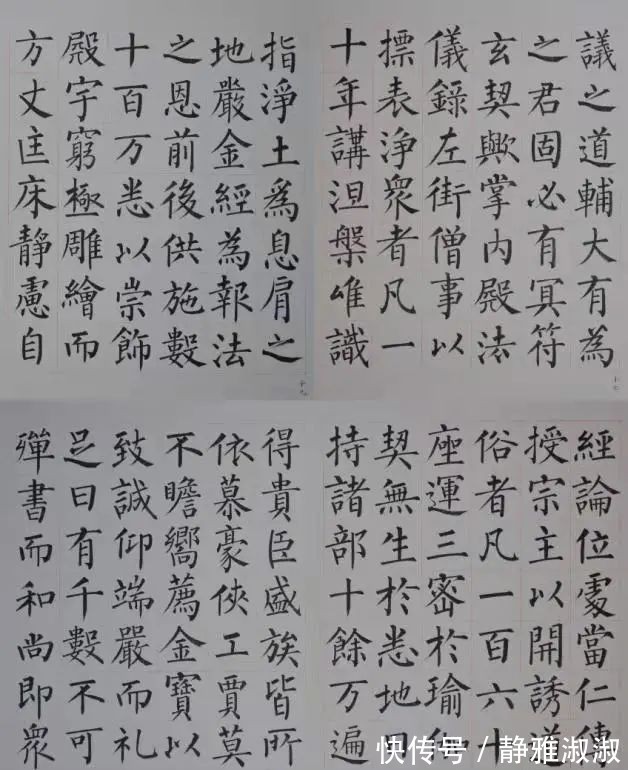 議之道輔大有為
之君固必有冥符
玄契歟掌內殿法
儀錄左街僧事以
摽表淨衆者凡一
十年講涅槃唯識
經論位處當仁傳
授宗主以開誘道
俗者凡一百六十
座運三密於瑜伽
契無生於悉地日
持諸部十餘万遍
指淨土為息肩之
地嚴金經為報法
之恩前後供施數
十百万悉以崇飾
殿宇窮極雕繪而
方丈匡床靜慮自
得貴臣盛族皆所
依慕豪俠工賈莫
不瞻嚮薦金寶以
致誠仰端嚴而礼
足日有千數不可
殫書而和尚即衆
快传号/静雅淑淑